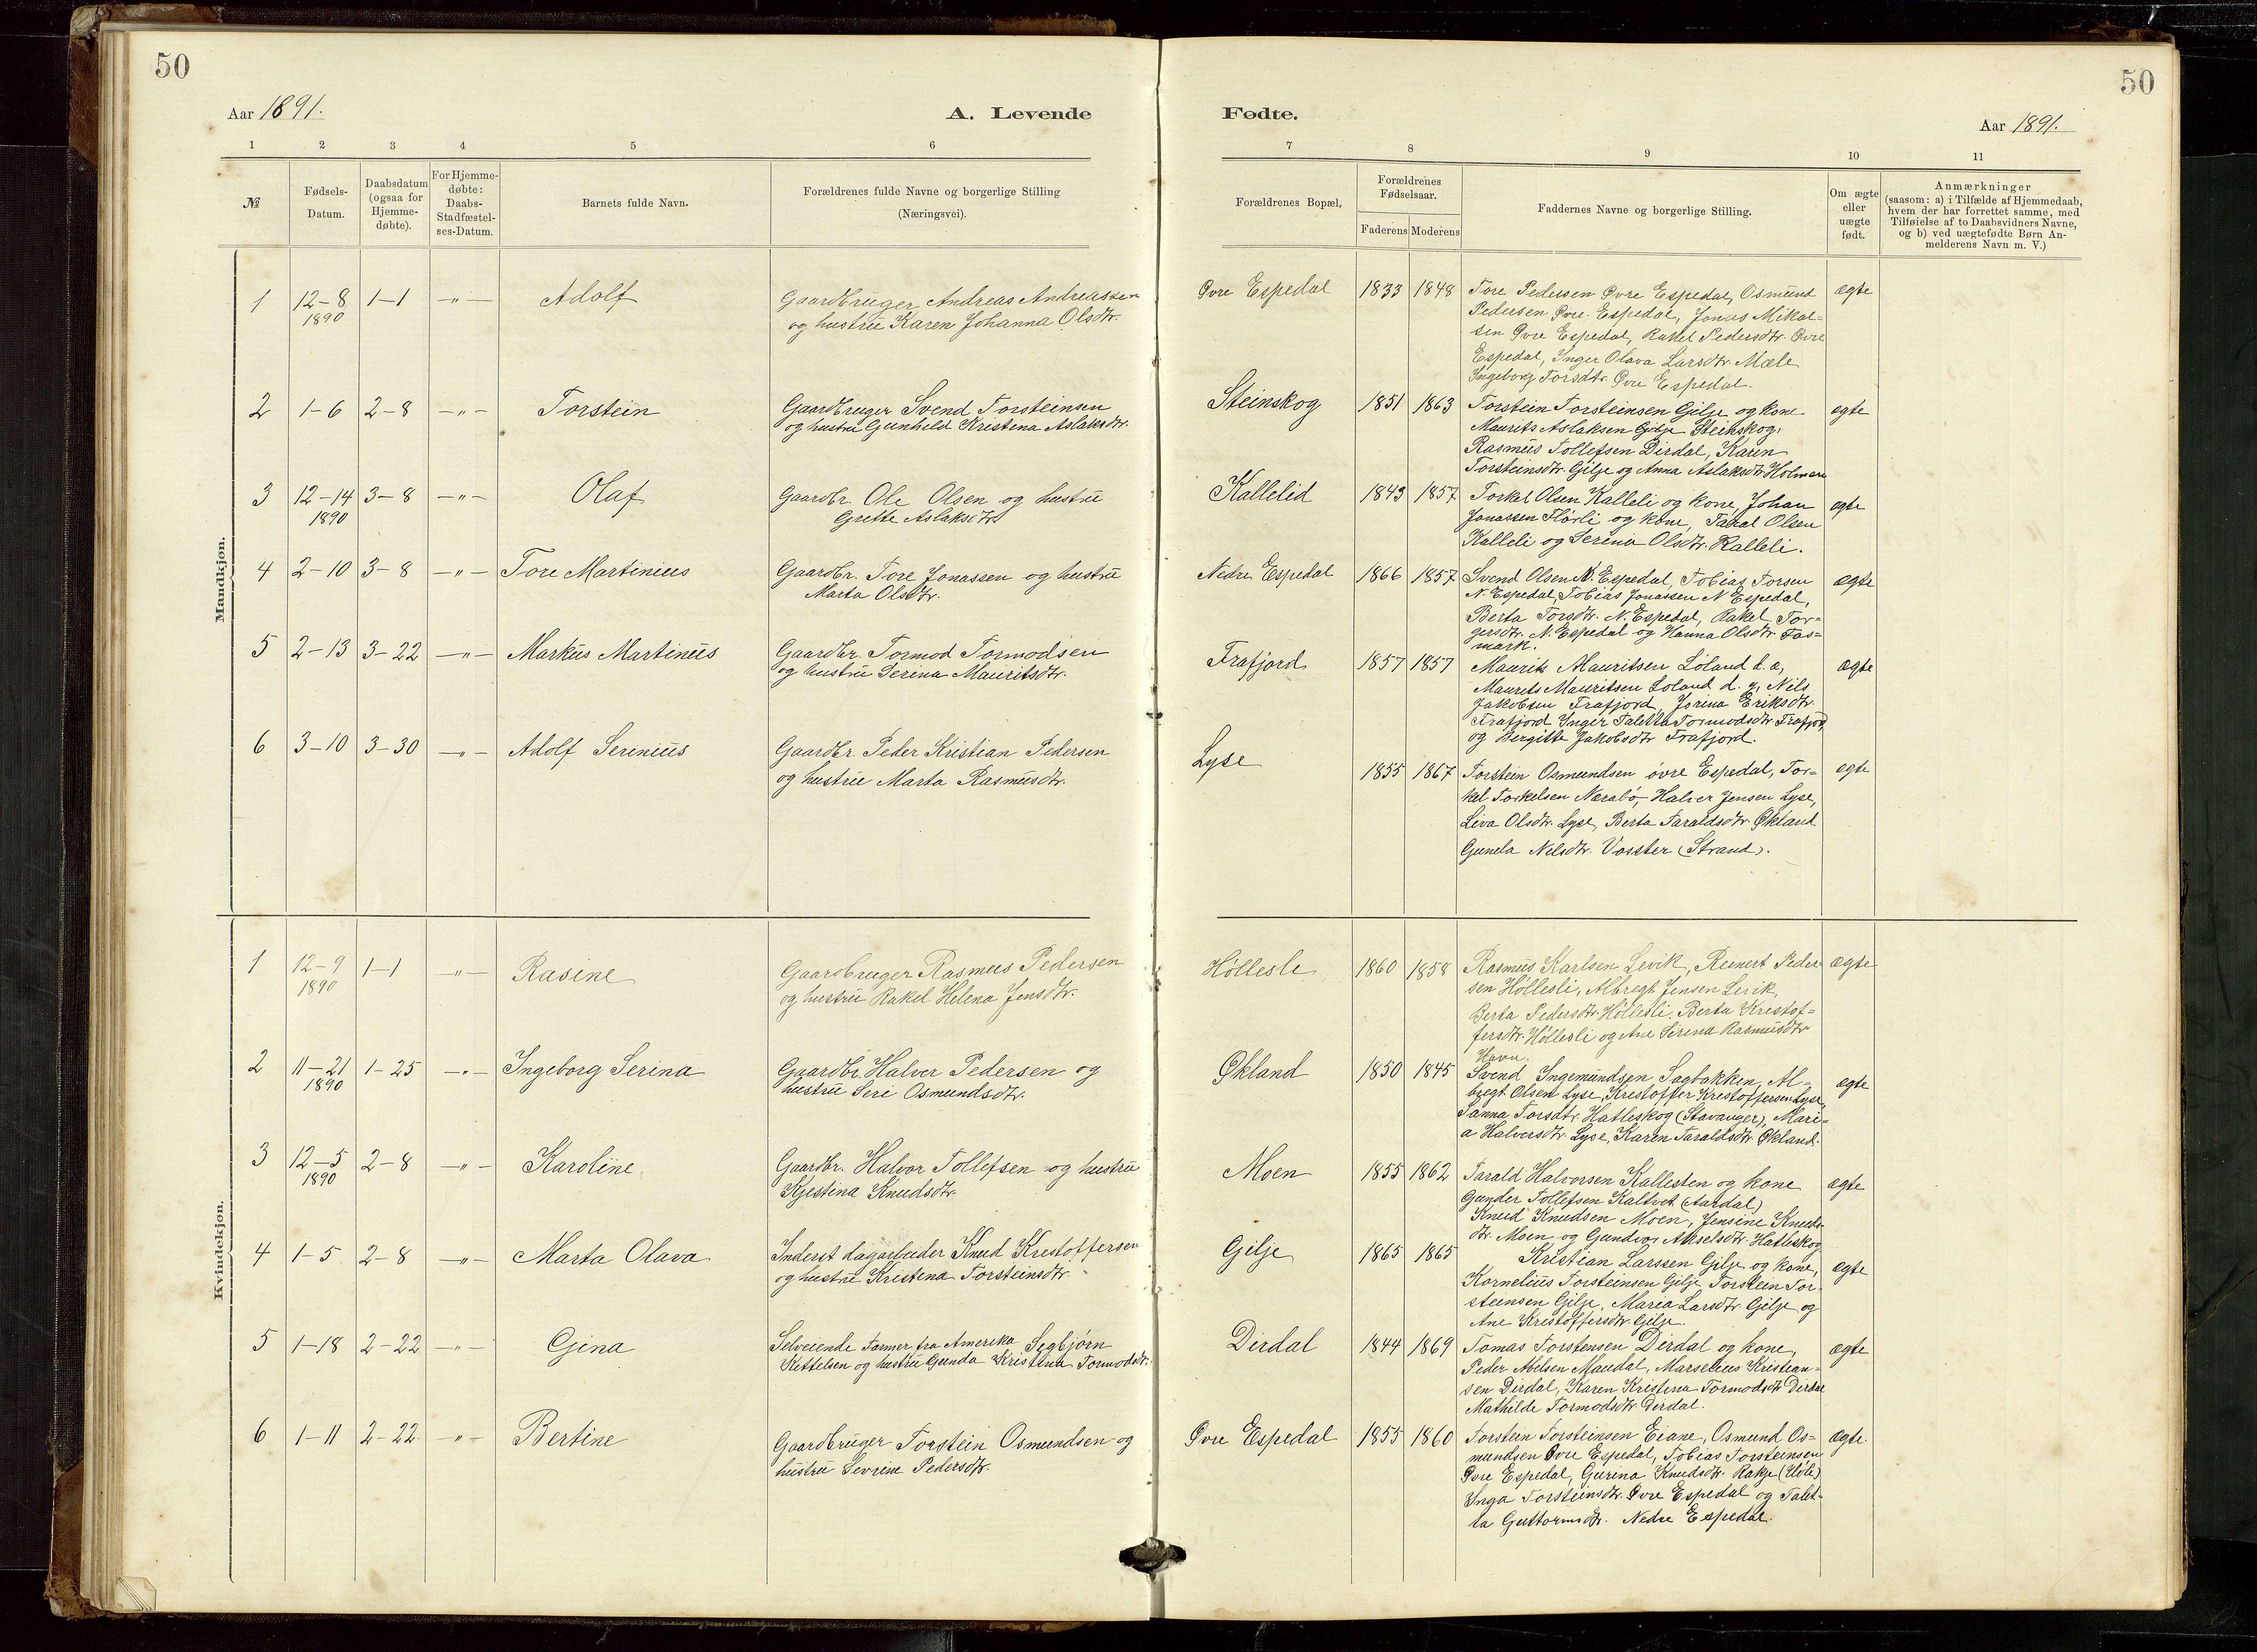 50
50
Aar 1891.
A. Levende
Fødte.
Aar 1891.
1 2 3 4 5 6 7 8 9 10 11
№
Fødsels-
Datum.
Daabsdatum
(ogsaa for
Hjemme-
døbte).
For Hjemme-
døbte:
Daabs-
Stadfæstel-
ses-Datum.
Barnets fulde Navn.
Forældrenes fulde Navne og borgerlige Stilling
(Næringsvei).
Forældrenes Bopæl.
Forældrenes
Fødselsaar.
Faderens Moderens
Faddernes Navne og borgerlige Stilling.
Om ægte
eller
uægte
født.
Anmærkninger
(saasom: a) i Tilfælde af Hjemmedaab,
hvem der har forrettet samme, med
Tilføielse af to Daabsvidners Navne,
og b) ved uægtefødte Børn An-
melderens Navn m. V.)
Mandkjøn.
1 12-8 1-1 -"- Adolf
1890
Gaardbruger Andreas Andreassen
og hustru Karen Johanna Olsdtr.
Øvre Espedal 1833 1848
Tore Pedersen Øvre Espedal, Osmund
Pedersen Øvre Espedal, Jonas Mikal-
sen Øvre Espedal, Rakel Pedersdtr. Øvre
Espedal, Inger Olava Larsdtr. Mæle
Ingeborg Torsdtr. Øvre Espedal.
ægte
2 1-6 2-8 -"- Torstein
Gaardbruger Svend Torsteinsen
og hustru Gunhild Kristina Aslaksdtr.
Steinskog 1851 1863
Torstein Torsteinsen Gilje og kone
Maurits Aslaksen Gilje Steinskog,
Rasmus Tollefsen Dirdal, Karen
Torsteinsdtr. Gilje og Anna Aslaksdtr. Holmen
ægte
3 12-14 3-8 -"- Olaf
1890
Gaardbr. Ole Olsen og hustru
Grette Aslaksdtr.
Kallelid 1843 1857
Torkel Olsen Kalleli og kone, Johan
Jonassen Flørli og kone, Taral Olsen
Kalleli og Serina Olsdtr. Kalleli.
ægte
4 2-10 3-8 -"- Tore Martinius
Gaardbr. Tore Jonassen og hustru
Marta Olsdtr.
Nedre Espedal 1866 1857
Svend Olsen N. Espedal, Tobias Torsen
N. Espedal, Tobias Jonassen N Espedal,
Berta Torsdtr. N. Espedal, Rakel Tor-
gersdtr. N. Espedal og Hanna Olsdtr. Fos-
mark.
ægte
5 2-13 3-22 -"- Markus Martinus
Gaardbr. Tormod Tormodsen
og hustru Serina Mauritsdtr.
Frafjord 1857 1857
Maurits Mauritsen Loland d. æ,
Maurits Mauritsen Loland d. y, Nils
Jakobsen Frafjord, Jorina Eriksdtr.
Frafjord Inger Taletta Tormodsdtr Frafjord,
og Bergitte Jakobsdtr Frafjord.
ægte
6 3-10 3-30 -"- Adolf Serinius
Gaardbr. Peder Kristian Pedersen
og hustru Marta Rasmusdtr.
Lyse 1855 1867
Torstein Osmundsen øvre Espedal, Tor-
kel Torkelsen Nærabø, Halver Jensen Lyse,
Liva Olsdtr. Lyse, Berta Taraldsdtr. Økland
Gunela Nilsdtr. Vosster (Strand).
ægte
Kvindekjøn.
1 12-9 1-1 -"- Rasine
1890
Gaardbruger Rasmus Pedersen
og hustru Rakel Helena Jensdtr.
Høllesli 1860 1858
Rasmus Karlsen Levik, Reinert Peder
sen Høllesli, Albregt Jensen Levik,
Berta Pedersdtr. Høllesli. Berta Kristof-
fersdtr. Høllesli og Ane Serina Rasmusdtr
Havn.
ægte
2 11-21 1-25 -"- Ingeborg Serina
1890
Gaardbr. Halver Pedersen og
hustru Seri Osmundsdtr.
Økland 1850 1845
Svend Ingemundsen Sagbakken, Al-
bregt Olsen Lyse, Kristoffer Kristoffersen Lyse,
Sanna Torsdtr. Hatleskog (Stavanger), Mari-
a Halversdtr. Lyse, Karen Taraldsdtr. Økland.
ægte
3 12-5 2-8 -"- Karoline
1890
Gaardbr. Halvor Tollefsen og hustru
Kjestina Knudsdtr.
Moen 1855 1862
Tarald Halvorsen Kallesten og kone
Gunder Tollefsen Kaltvet (Aardal)
Knud Knudsen Moen, Jensine Knuds-
dtr. Moen og Gundvor Akselsdtr. Hatleskog
ægte
4 1-5 2-8 -"- Marta Olava
Inderst dagarbeider Knud Kristoffersen
og hustru Kristina Torsteinsdtr.
Gilje 1865 1865
Kristian Larssen Gilje og kone,
Kornelius Torsteinsen Gilje Torstein Tor-
steinsen Gilje, Maria Larsdtr. Gilje og
Ane Kristoffersdtr. Gilje.
ægte
5 1-18 2-22 -"- Gina
Selveiende Farmer fra Amerika Segbjørn
Kettelsen og hustru Gunda Kristina Tormodsdtr.
Dirdal 1844 1869
Tomas Torstensen Dirdal og kone,
Peder Abelsen Maudal, Marselius Kristian-
sen Dirdal, Karen Kristina Tormodsdtr Dirdal
Mathilde Tormodsdtr. Dirdal.
ægte
6 1-11 2-22 -"- Bertine
Gaardbruger Torstein Osmundsen og
hustru Sevrine Pedersdtr.
Øvre Espedal 1855 1860
Torstein Torsteinsen Eiane, Osmund Os-
mundsen Øvre Espedal, Tobias Torsteinsen
Øvre Espedal, Gurina Knudsdtr. Rakje (Høle)
Inga Torsteinsdtr. Øvre Espedal og Talet-
ta Guttormsdtr. Nedre Espedal.
ægte.